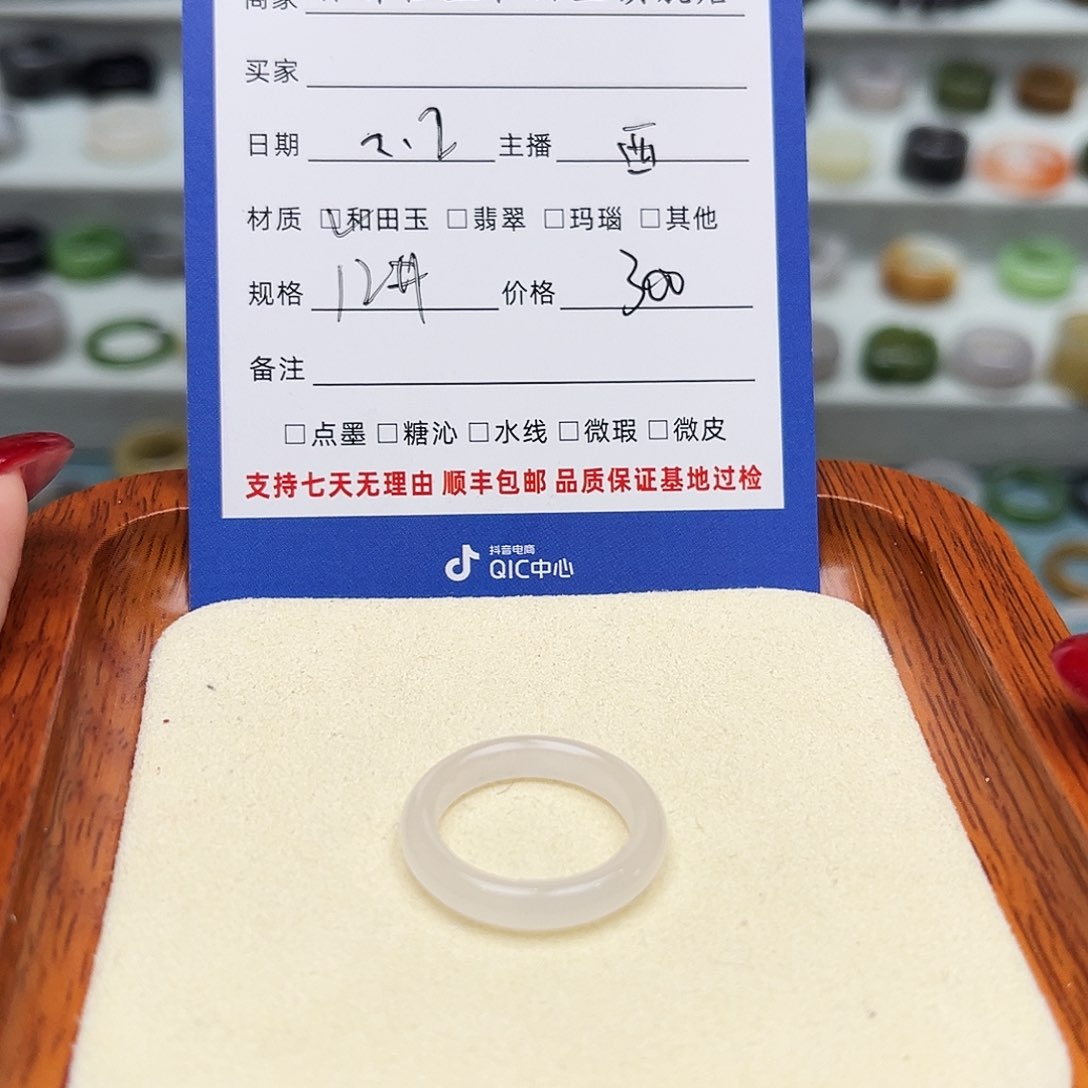 商家
买家
日期 2.2 主播 西
材质 ☑和田玉 □翡翠 □玛瑙 □其他
规格 12# 价格 300
备注
□点墨 □糖沁 □水线 □微瑕 □微皮
支持七天无理由 顺丰包邮 品质保证基地过检
抖音电商
QIC中心